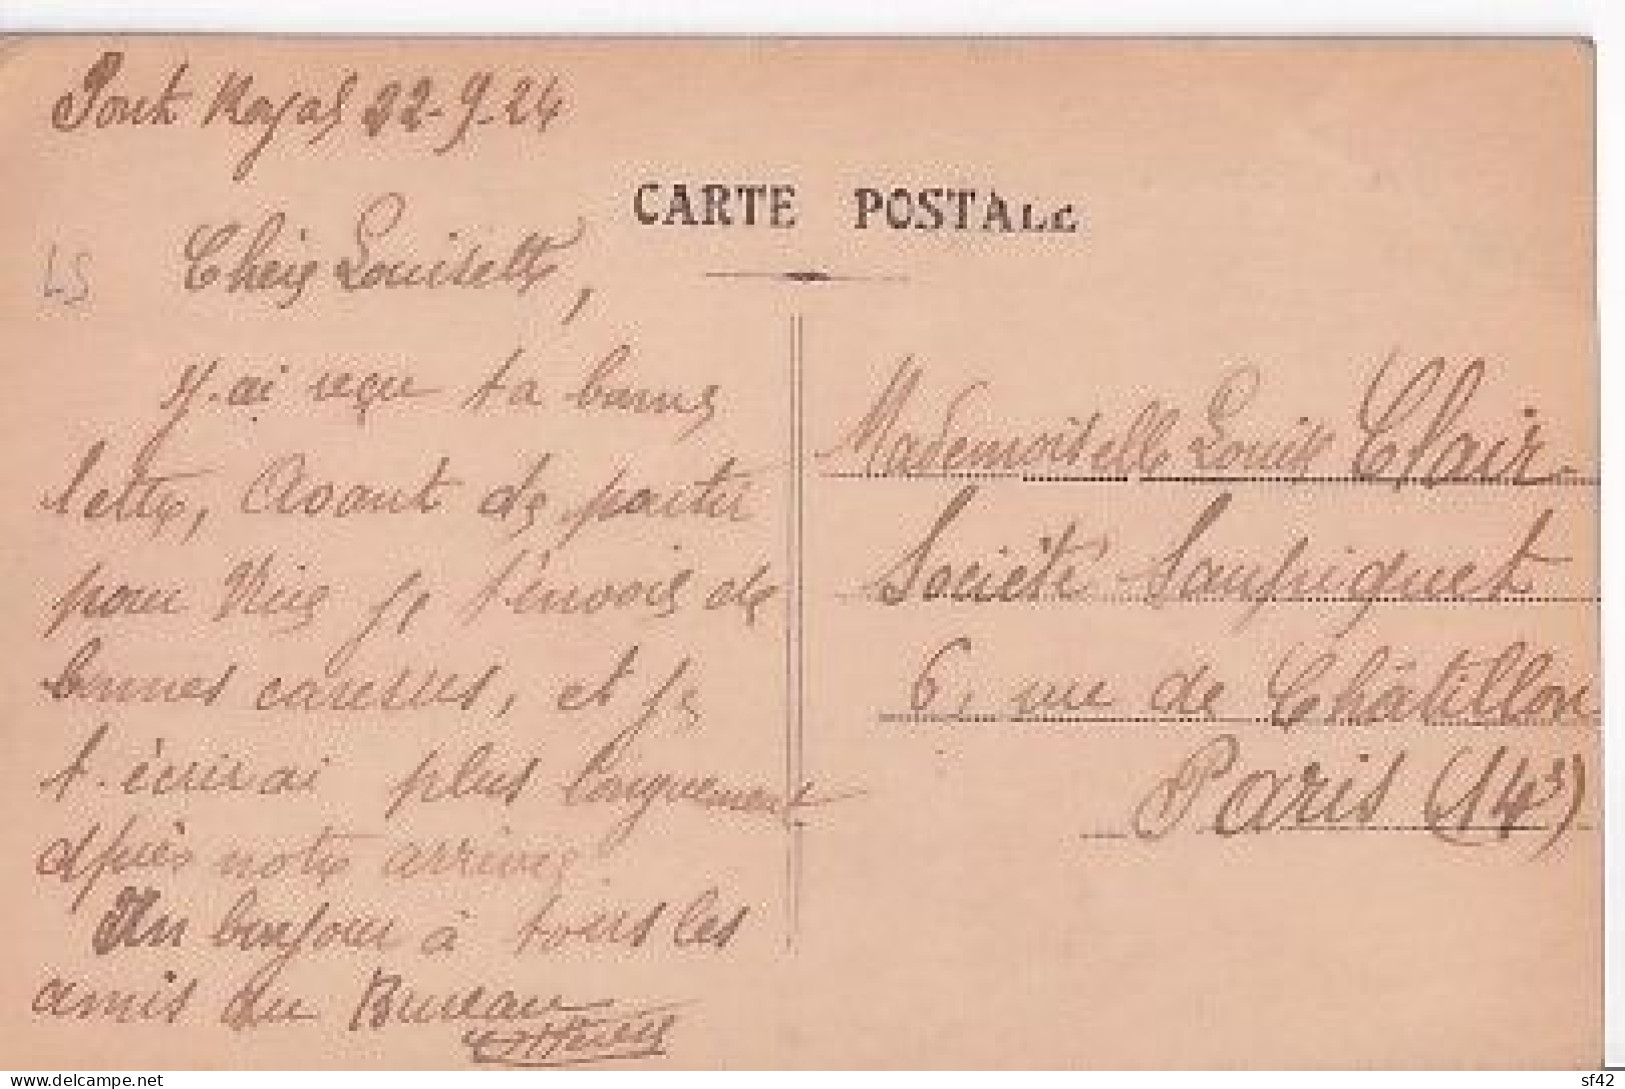 Pont Royal 22-9-24
CARTE POSTALE
LS
Chère Louisette,
J'ai reçu ta bonne
lettre, Avant de partir
pour Nice je t'envois de
bonnes caresses, et je
t'écrirai plus longuement
après notre arrivée.
Un bonjour à tous les
amis du Bureau
Mademoiselle Louise Clair
Société Saupiquet
6, rue de Châtillon
Paris (14e)
delcampe.net
sf42